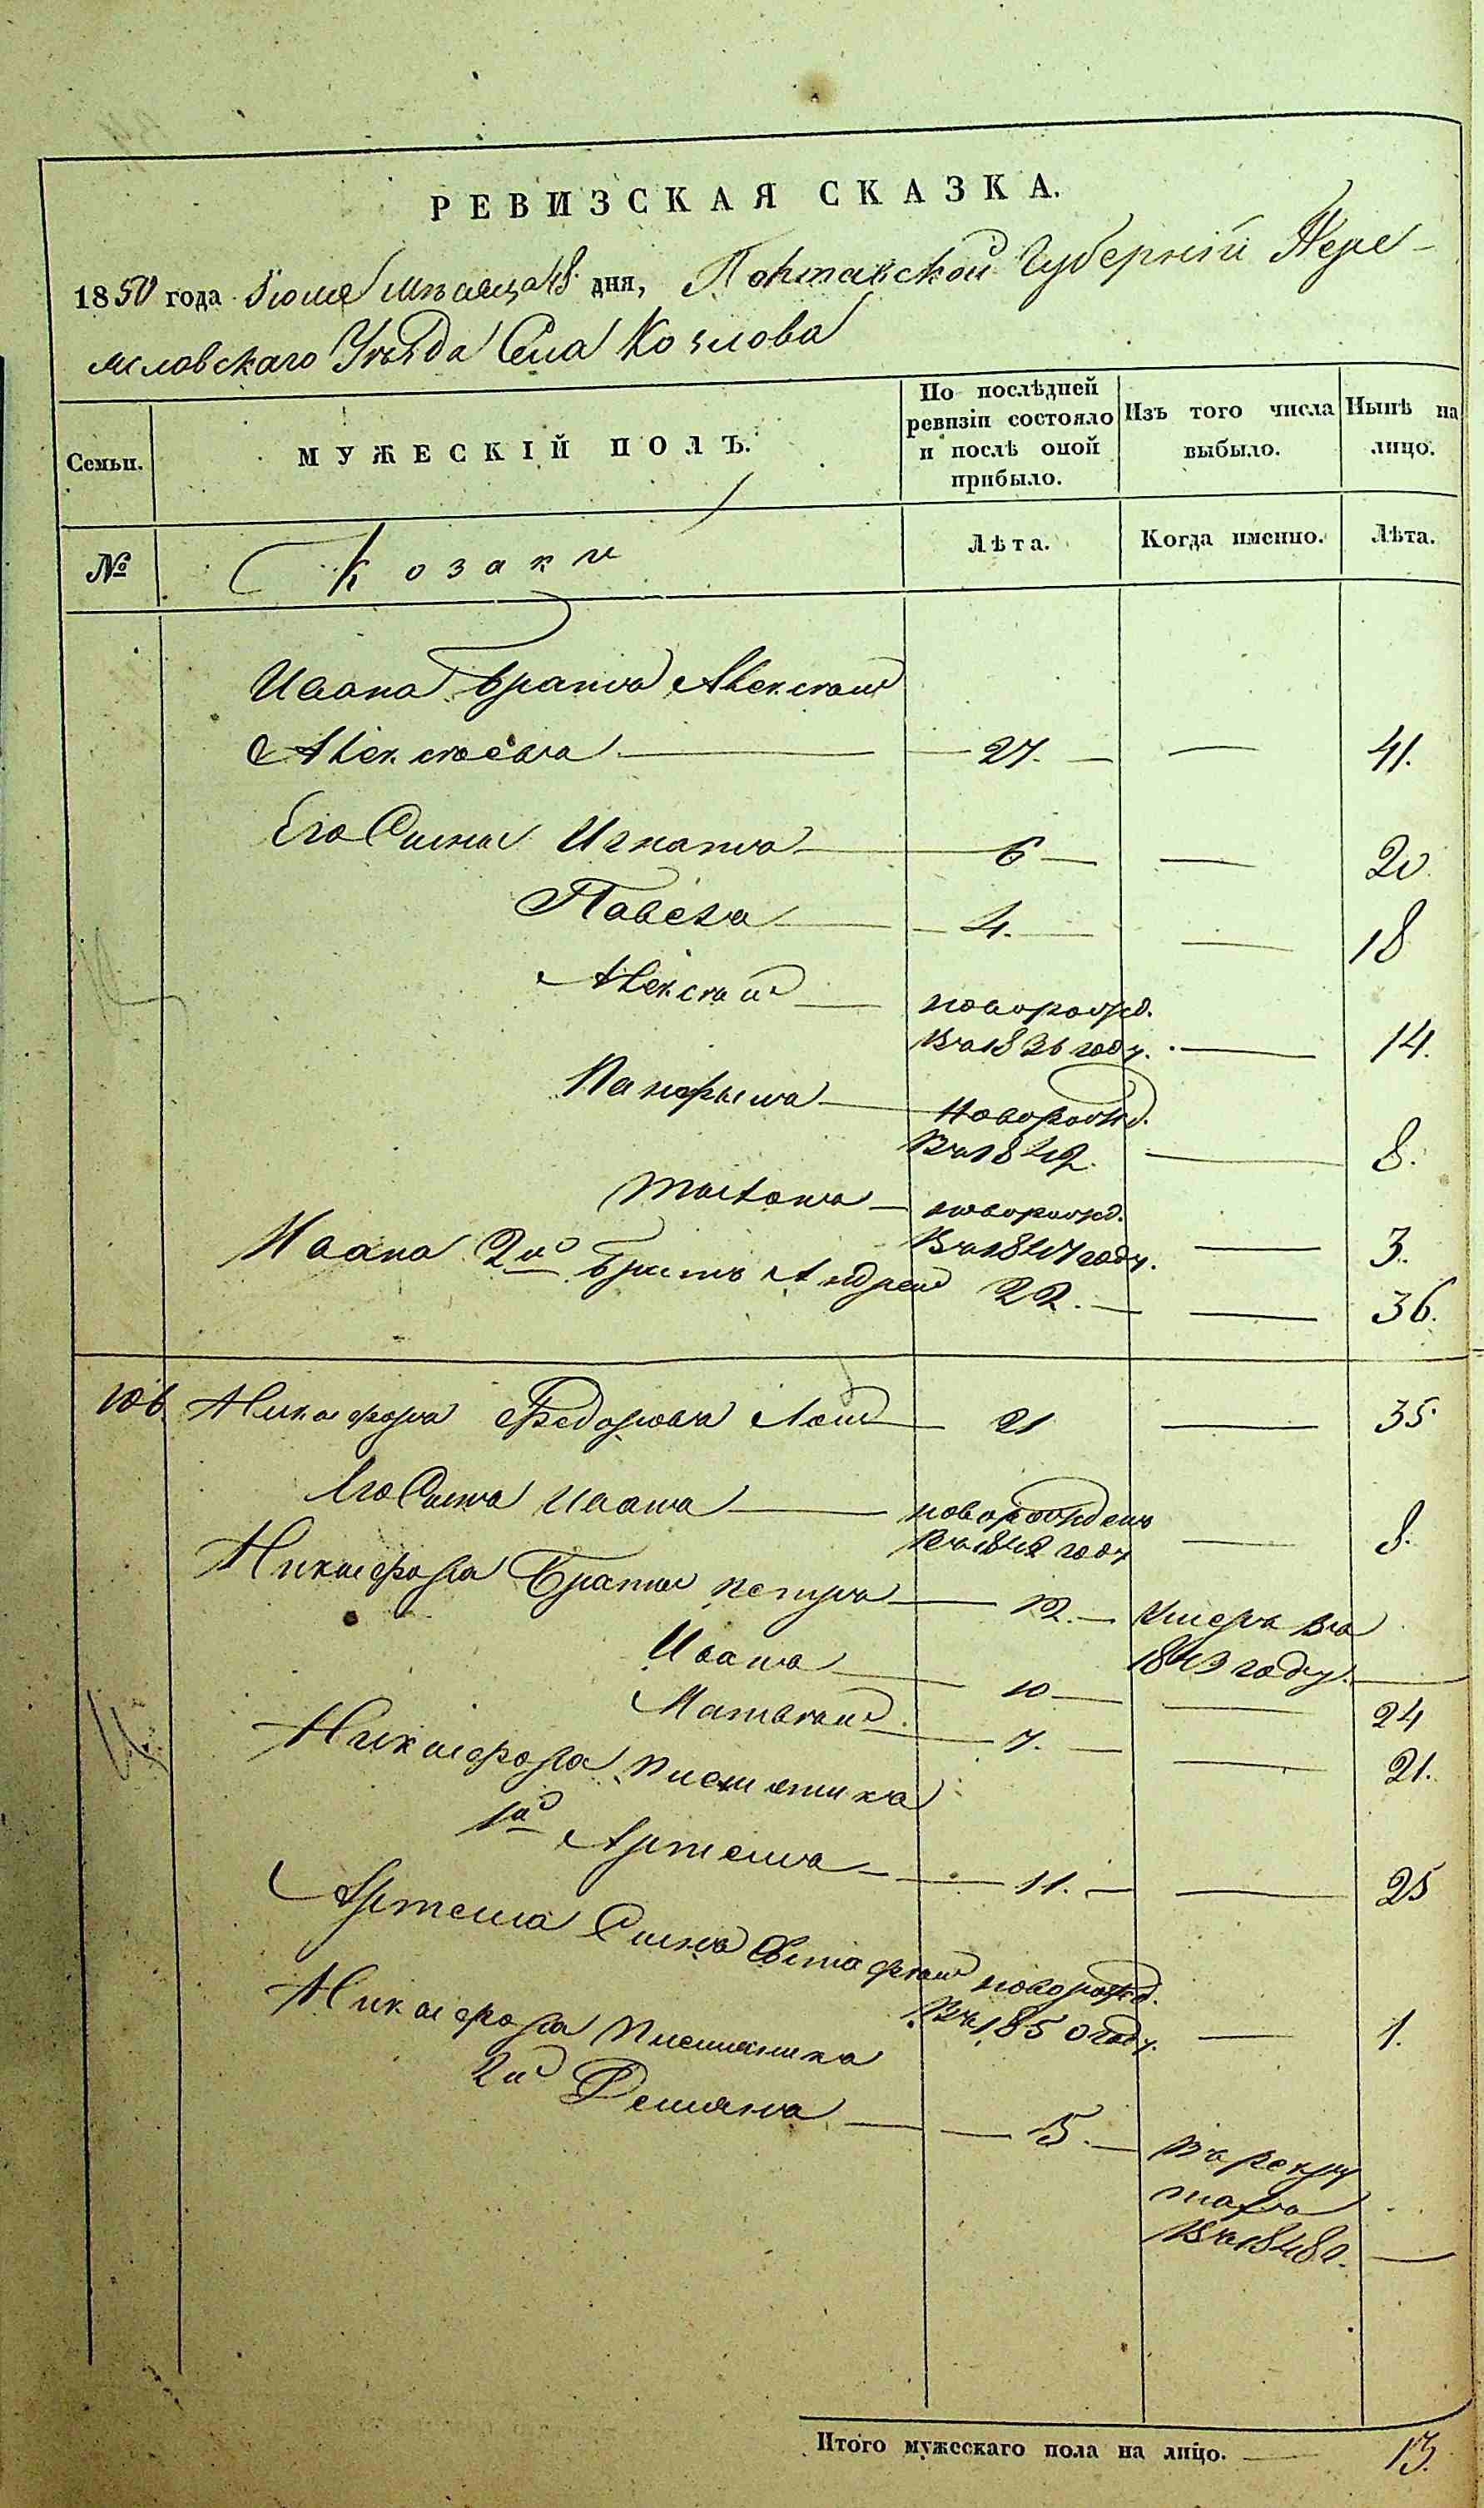 РЕВИЗСКАЯ СКАЗКА.
1850 года Июня месяца 18 дня, Полтавской Губерніи Пере-
яславскаго Уѣзда Села Козлова
Семьи. МУЖЕСКІЙ ПОЛЪ. По послѣдней ревизіи состояло и послѣ оной прибыло. Изъ того числа выбыло. Нынѣ на лицо.
№ Козаки Лѣта. Когда именно. Лѣта.
Ивана братъ Алексѣй
Алексѣевъ 27. 41.
Его Сыны Игнатъ 6 20
Павелъ 4. 18
Алексѣй новорожд.
въ 1836 году. 14.
Панфилъ новорожд.
въ 1842. 8.
новорожд.
въ 1847 году. 3.
Ивана 2й братъ Андрей 22. 36.
106 Никифоръ Федоровъ 21 35.
Его Сынъ Иванъ новорожденъ
въ 1842 году 8.
Никифора братья Петръ 12. Умеръ въ
1849 году.
Иванъ 10 24
Матвѣй 7. 21.
Никифора племянникъ
1й Артемъ 11. 25
Артема Сынъ Евстафій новорожд.
въ 1850 году. 1.
Никифора племянникъ
2й Демянъ 15. въ рекру
тахъ
въ 1848 г.
Итого мужескаго пола на лицо. 13.